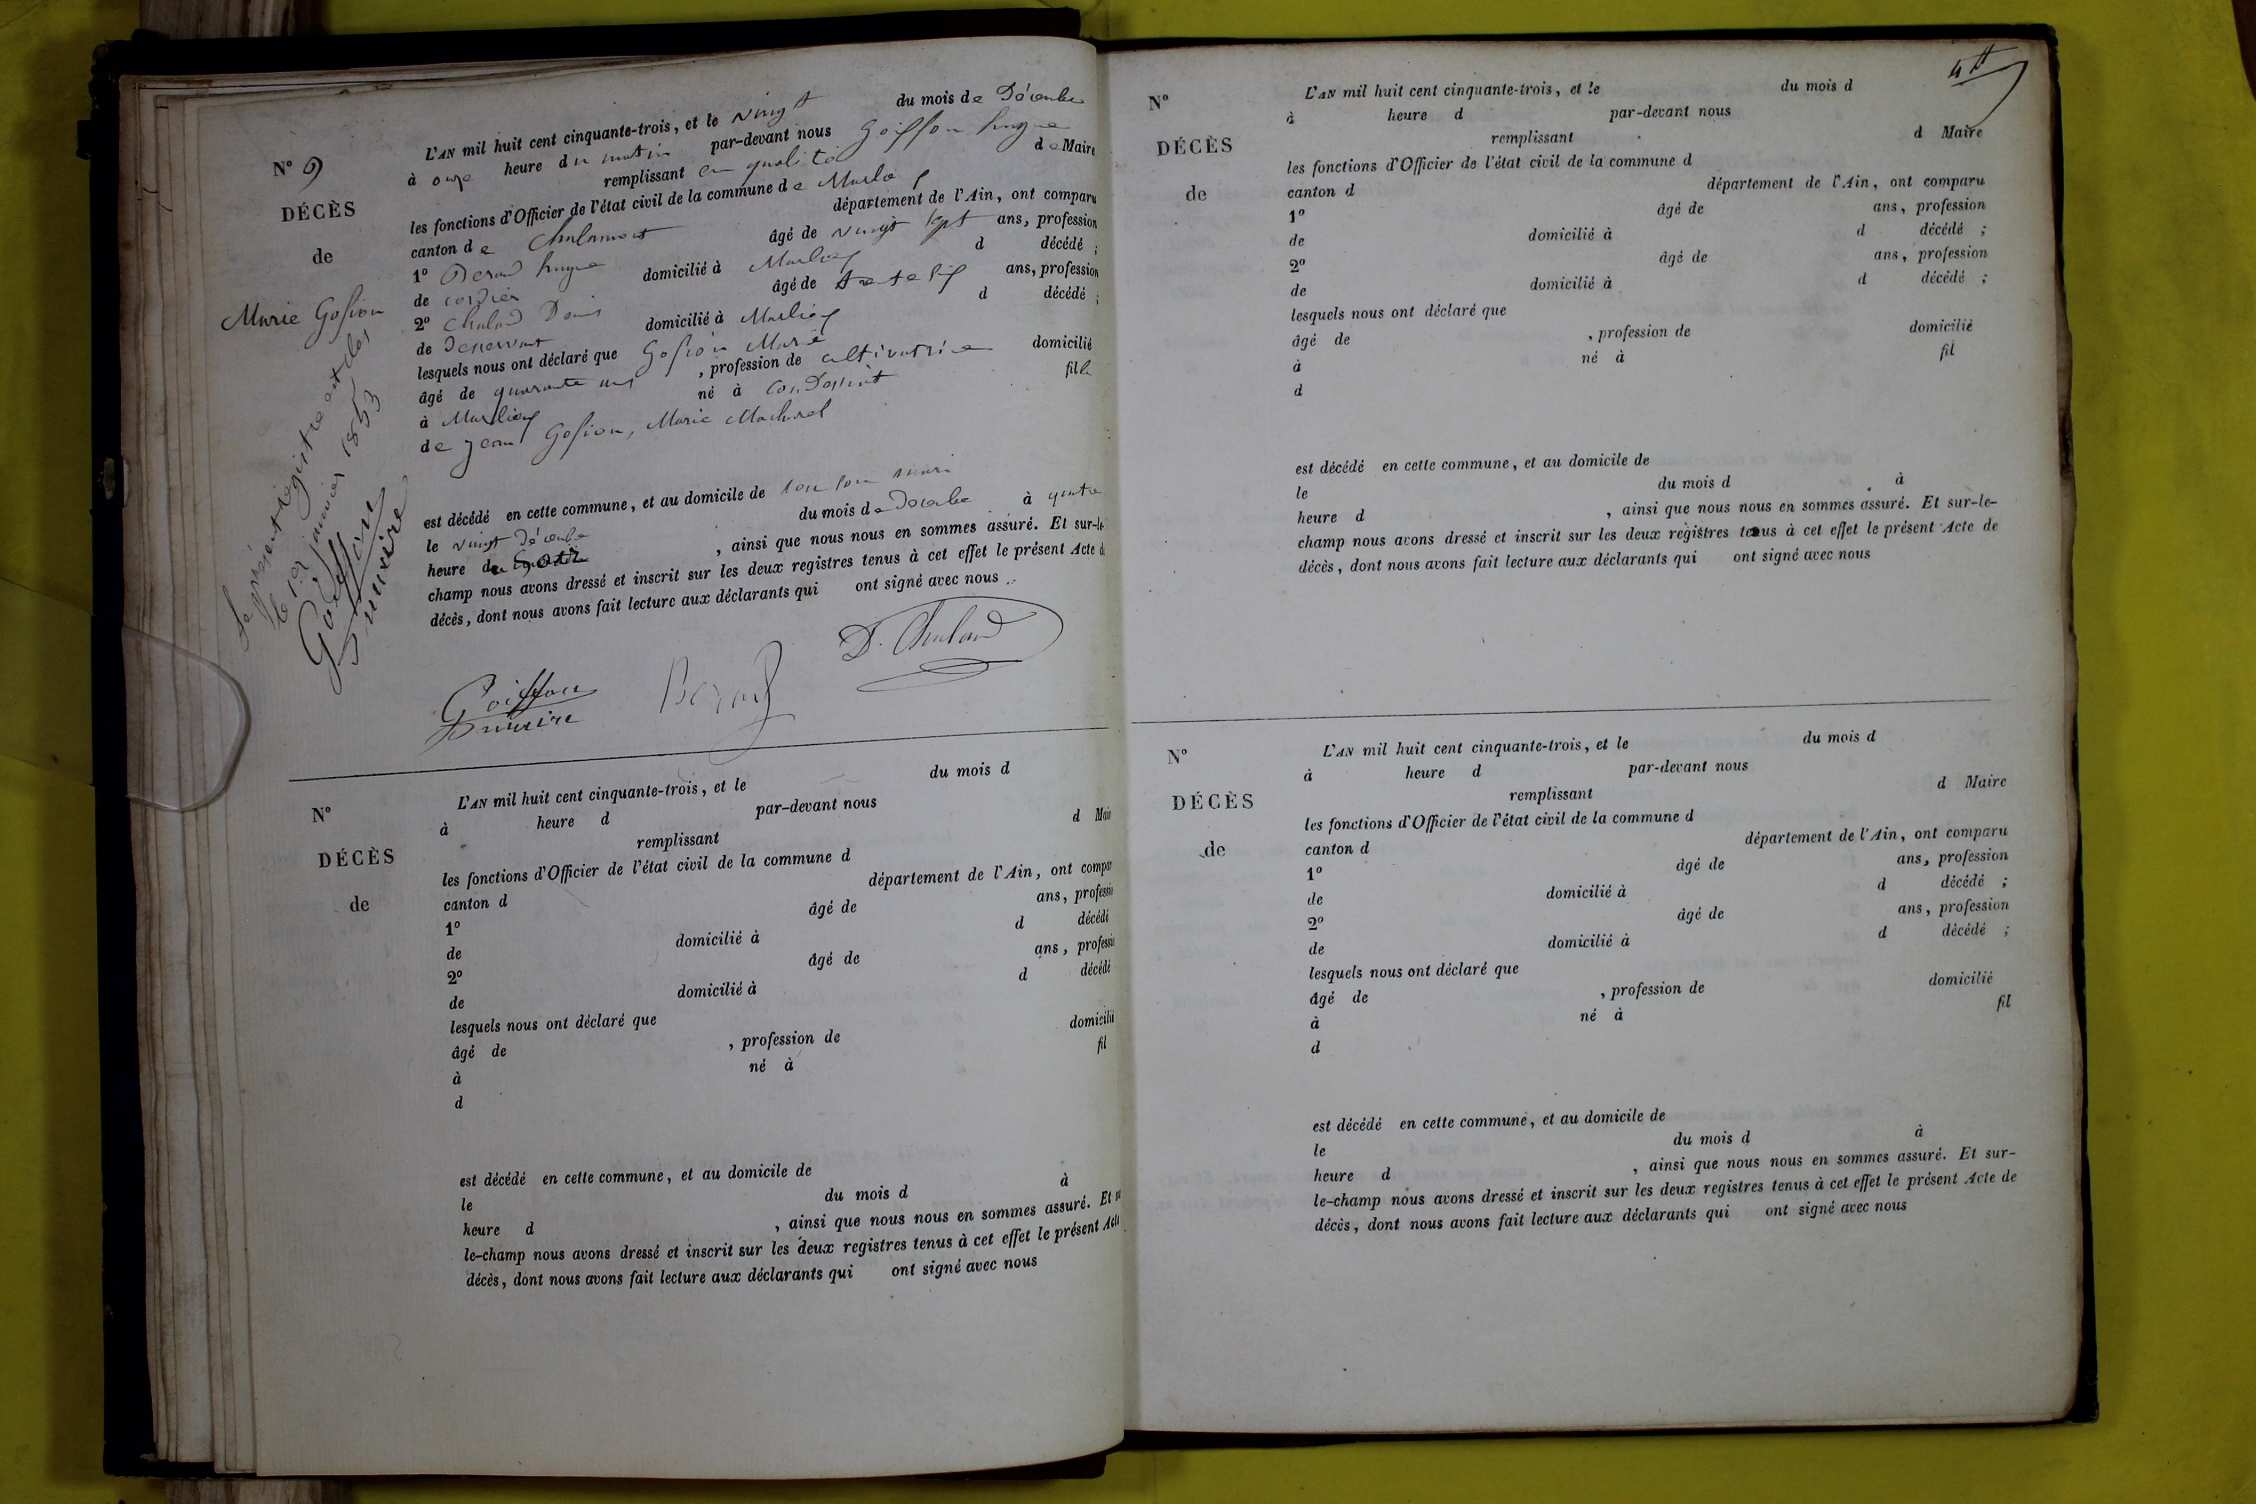 N° 9
DÉCÈS
de
Marie Gofion
L'AN mil huit cent cinquante-trois, et le vingt du mois de Décembre
à onze heure du matin par-devant nous Goiffon hugue
remplissant en qualité de Maire
les fonctions d'Officier de l'état civil de la commune de Marlieu
canton de Chalamont département de l'Ain, ont comparu
1° Berod hugue âgé de vingt sept ans, profession
de cordier domicilié à Marlieu d décédé ;
2° Chaland Denis âgé de trente six ans, profession
de domicilié à Marlieu d décédé ;
lesquels nous ont déclaré que Gofion Marie
âgé de quarante ans , profession de cultivatrice domicilié
à Marlieu né à Condessiat fille
de jean Gofion, Marie
est décédé en cette commune, et au domicile de son mari
le vingt Décembre du mois de Décembre à quatre
heure d , ainsi que nous nous en sommes assuré. Et sur-le-
champ nous avons dressé et inscrit sur les deux registres tenus à cet effet le présent Acte d
décès, dont nous avons fait lecture aux déclarants qui ont signé avec nous
Goiffon
maire
Berod
D. Chaland
Le présent registre est clos
le 1er janvier 1853
Goiffon
maire
N°
DÉCÈS
de
L'AN mil huit cent cinquante-trois, et le du mois d
à heure d par-devant nous
remplissant d Mai
les fonctions d'Officier de l'état civil de la commune d
canton d département de l'Ain, ont compar
1° âgé de ans, professi
de domicilié à d décédé
2° âgé de ans, professi
de domicilié à d décédé
lesquels nous ont déclaré que
âgé de , profession de domicilié
à né à fil
d
est décédé en cette commune, et au domicile de
le du mois d à
heure d , ainsi que nous nous en sommes assuré. Et su
le-champ nous avons dressé et inscrit sur les deux registres tenus à cet effet le présent Acte
décès, dont nous avons fait lecture aux déclarants qui ont signé avec nous
N°
DÉCÈS
de
L'AN mil huit cent cinquante-trois, et le du mois d
à heure d par-devant nous
remplissant d Maire
les fonctions d'Officier de l'état civil de la commune d
canton d département de l'Ain, ont comparu
1° âgé de ans, profession
de domicilié à d décédé ;
2° âgé de ans, profession
de domicilié à d décédé ;
lesquels nous ont déclaré que
âgé de , profession de domicilié
à né à fil
d
est décédé en cette commune, et au domicile de
le du mois d à
heure d , ainsi que nous nous en sommes assuré. Et sur-le-
champ nous avons dressé et inscrit sur les deux registres tenus à cet effet le présent Acte de
décès, dont nous avons fait lecture aux déclarants qui ont signé avec nous
N°
DÉCÈS
de
L'AN mil huit cent cinquante-trois, et le du mois d
à heure d par-devant nous
remplissant d Maire
les fonctions d'Officier de l'état civil de la commune d
canton d département de l'Ain, ont comparu
1° âgé de ans, profession
de domicilié à d décédé ;
2° âgé de ans, profession
de domicilié à d décédé ;
lesquels nous ont déclaré que
âgé de , profession de domicilié
à né à fil
d
est décédé en cette commune, et au domicile de
le du mois d à
heure d , ainsi que nous nous en sommes assuré. Et sur-
le-champ nous avons dressé et inscrit sur les deux registres tenus à cet effet le présent Acte de
décès, dont nous avons fait lecture aux déclarants qui ont signé avec nous